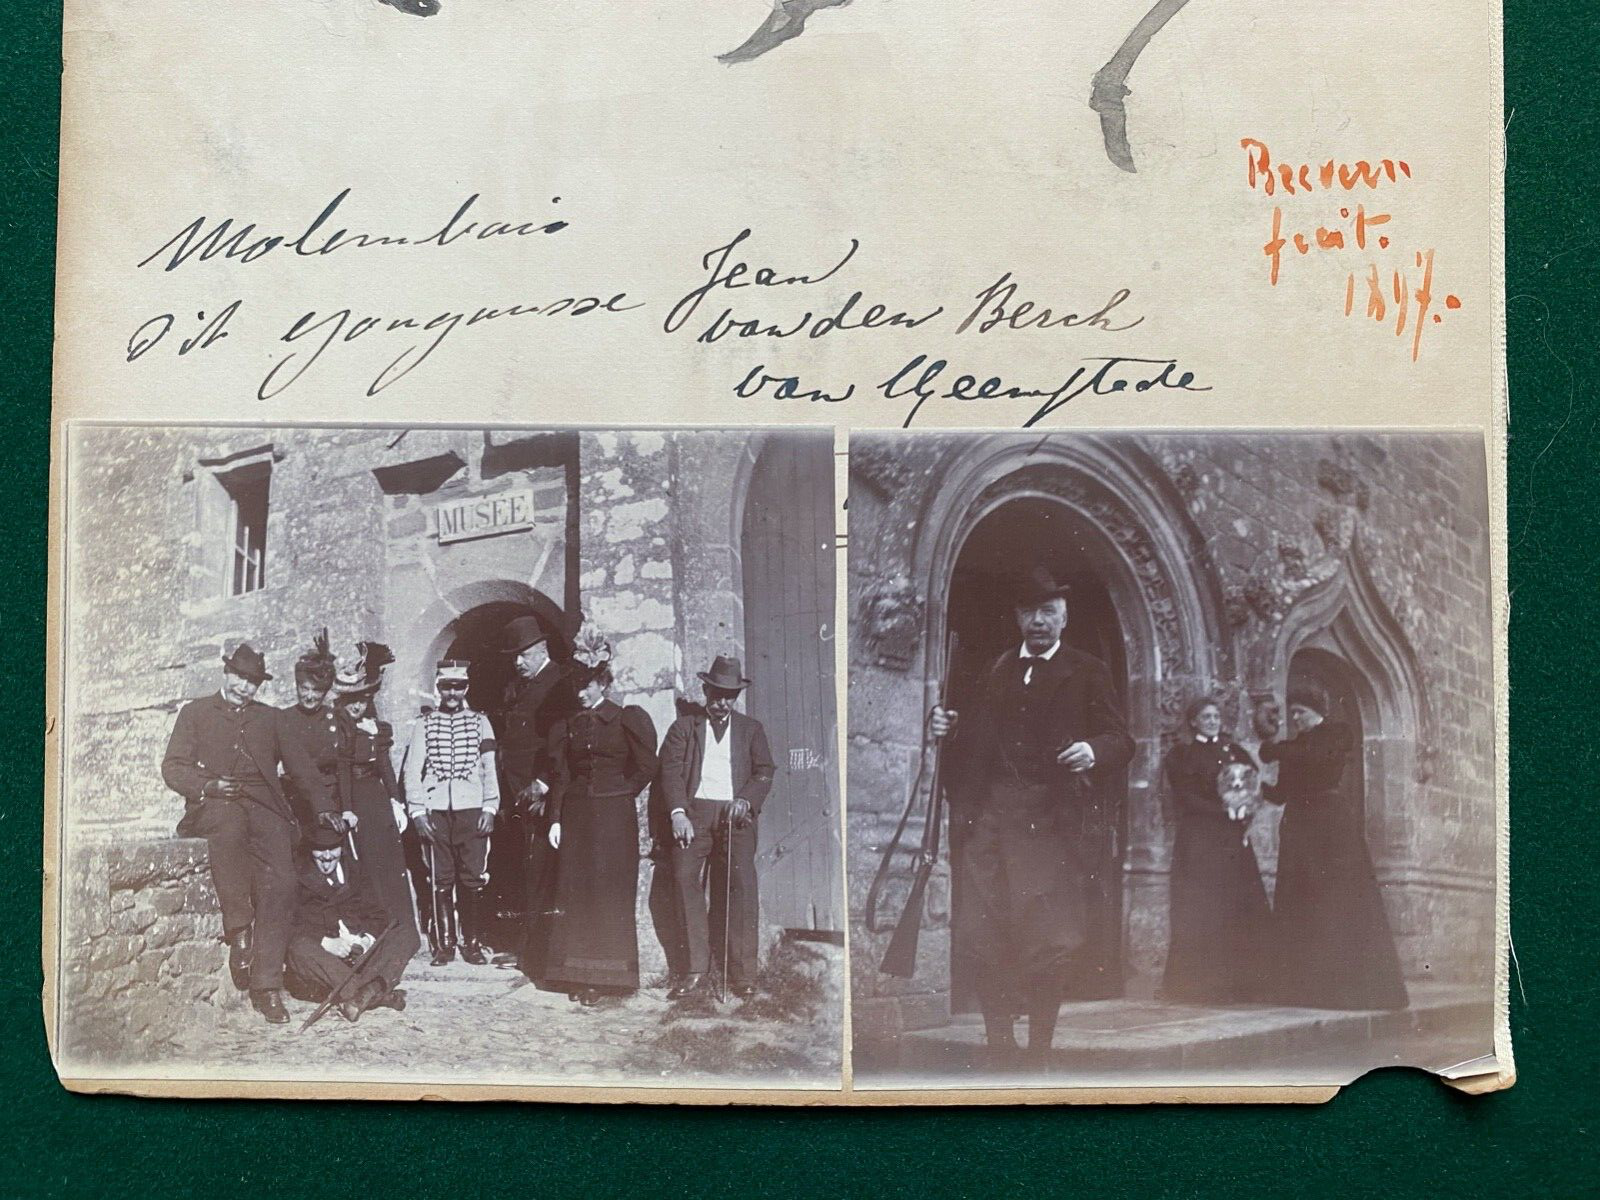 Molembais
dit Gougnusse
Jean
van den Berch
van Heemstede
Brevern
fecit.
1897.
MUSÉE